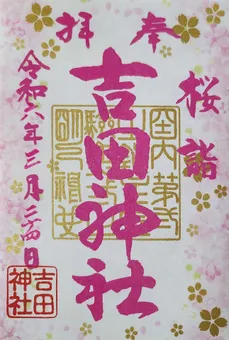 奉拝
桜詣
吉田神社
令和八年三月二四日
吉田
神社